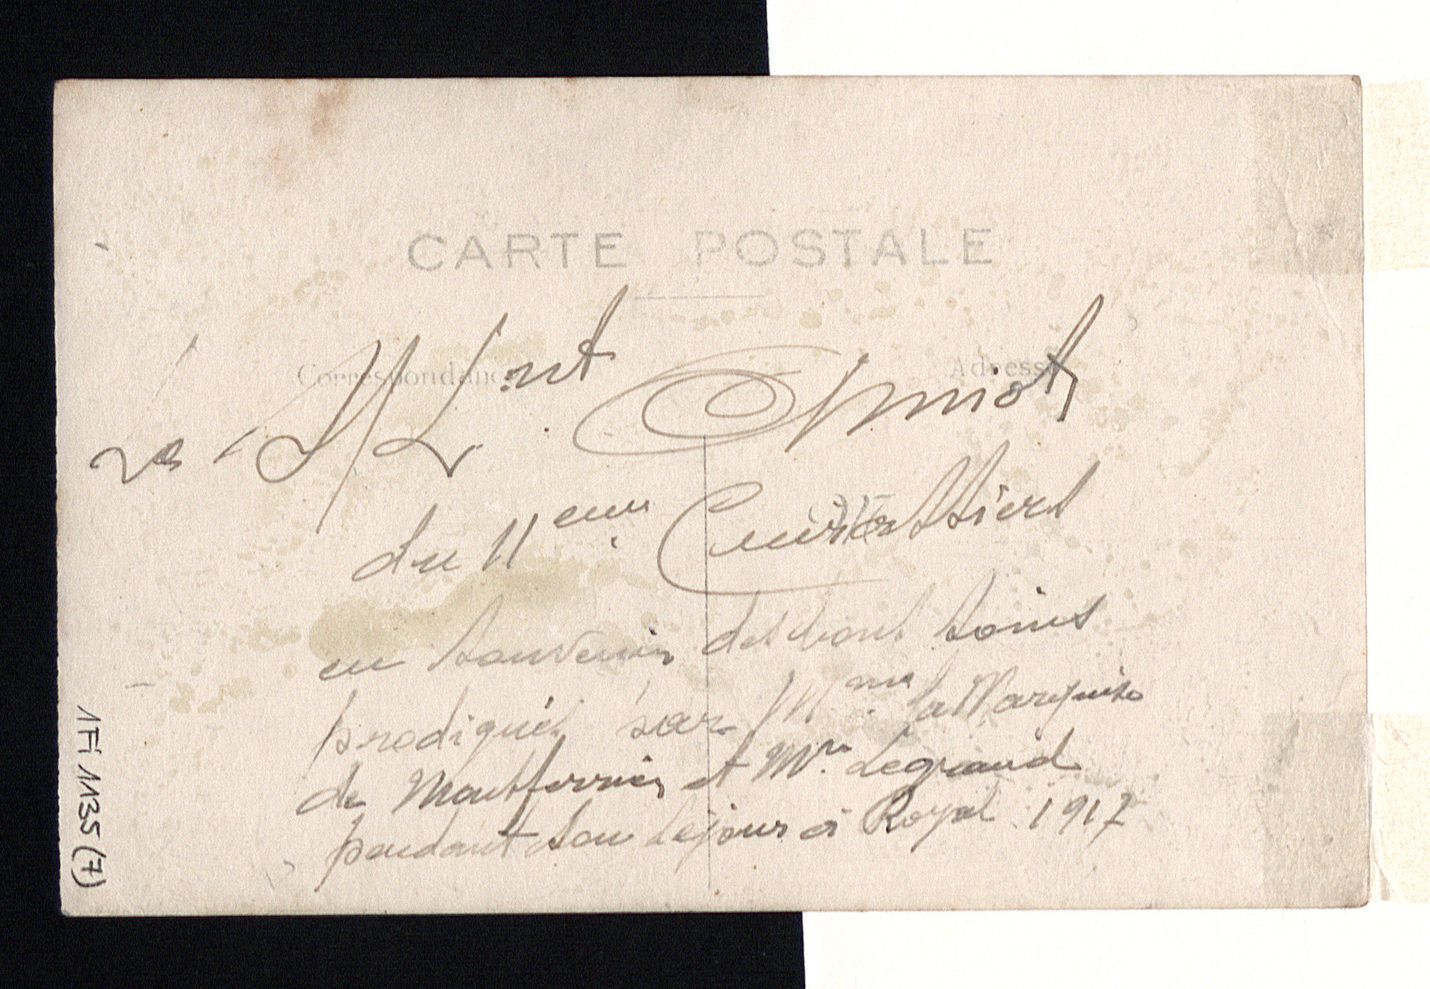 CARTE POSTALE
Correspondance
Adresse
Le S/Lt. nt Amiot
du 11 eme Cuirassiers
en souvenir des bons soins
prodigués par Mme la Marquise
de Montferrier et Mr Legrand
pendant son séjour à Royal 1917
1Fi 1135 (7)